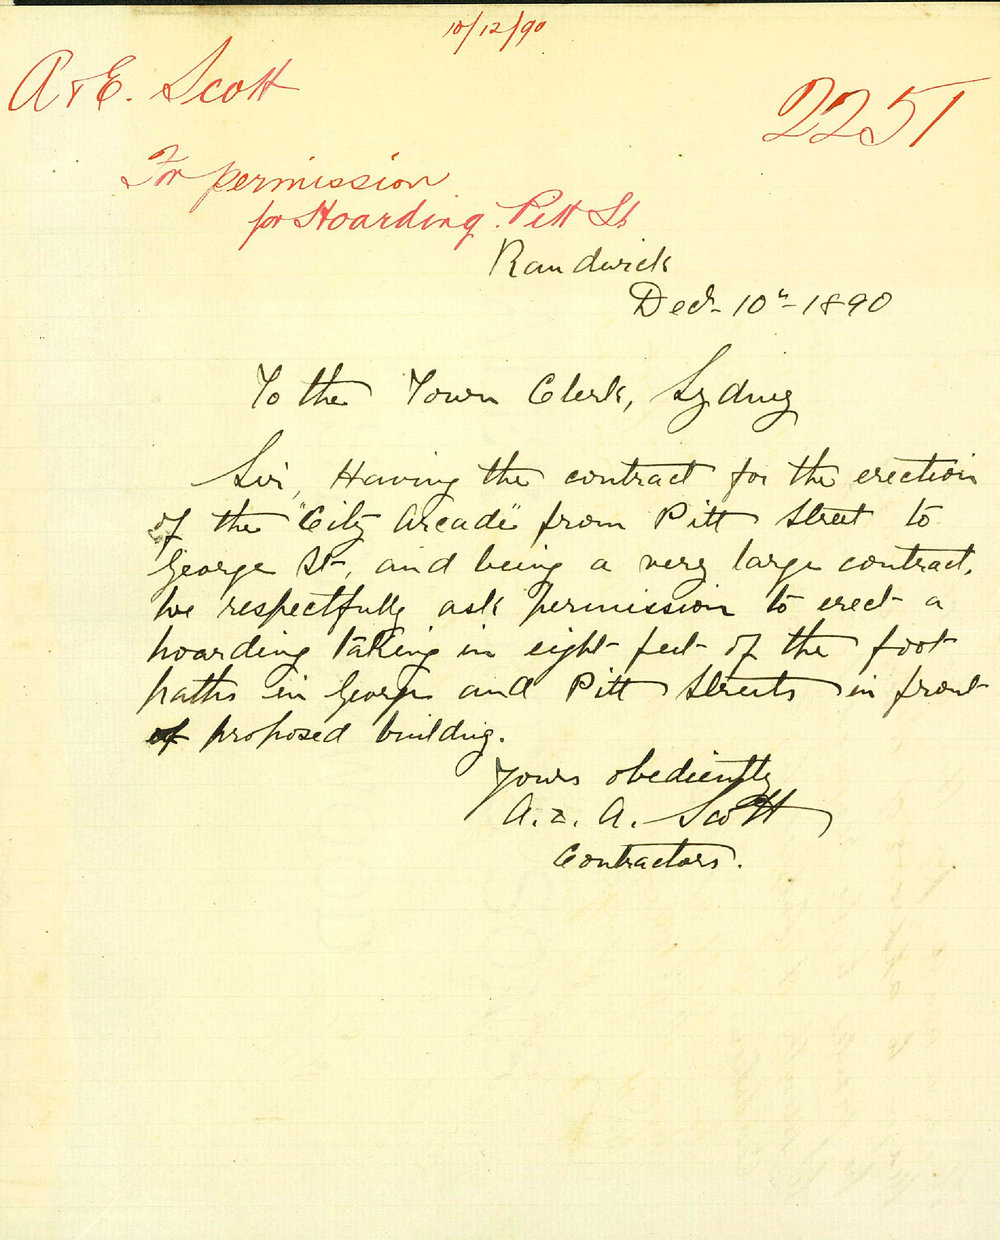 10/12/90
A & E. Scott
2251
For permission
for Hoarding. Pitt St
Randwick
Decr 10th 1890
To the Town Clerk, Sydney
Sir, Having the contract for the erection
of the "City Arcade" from Pitt Street to
George St, and being a very large contract,
we respectfully ask permission to erect a
hoarding taking in eight feet of the foot
paths in George and Pitt Streets in front
of proposed building.
Yours obediently
A. & A. Scott
Contractors.